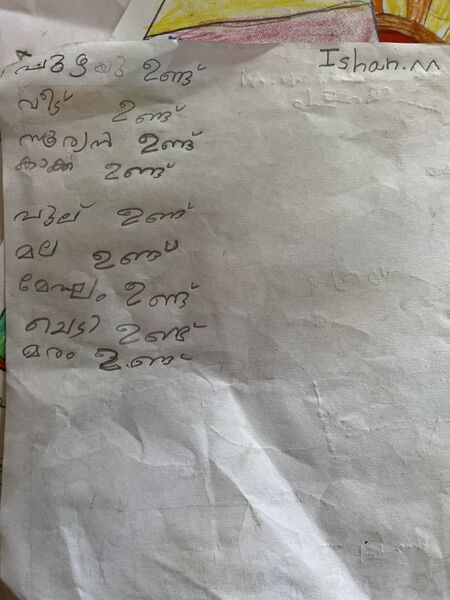 Ishan.M
പുഴയു ഉണ്ട്
വീട് ഉണ്ട്
സൂര്യൻ ഉണ്ട്
കാക്ക ഉണ്ട്
പുല് ഉണ്ട്
മല ഉണ്ട്
മേഘം ഉണ്ട്
ചെടി ഉണ്ട്
മരം ഉണ്ട്